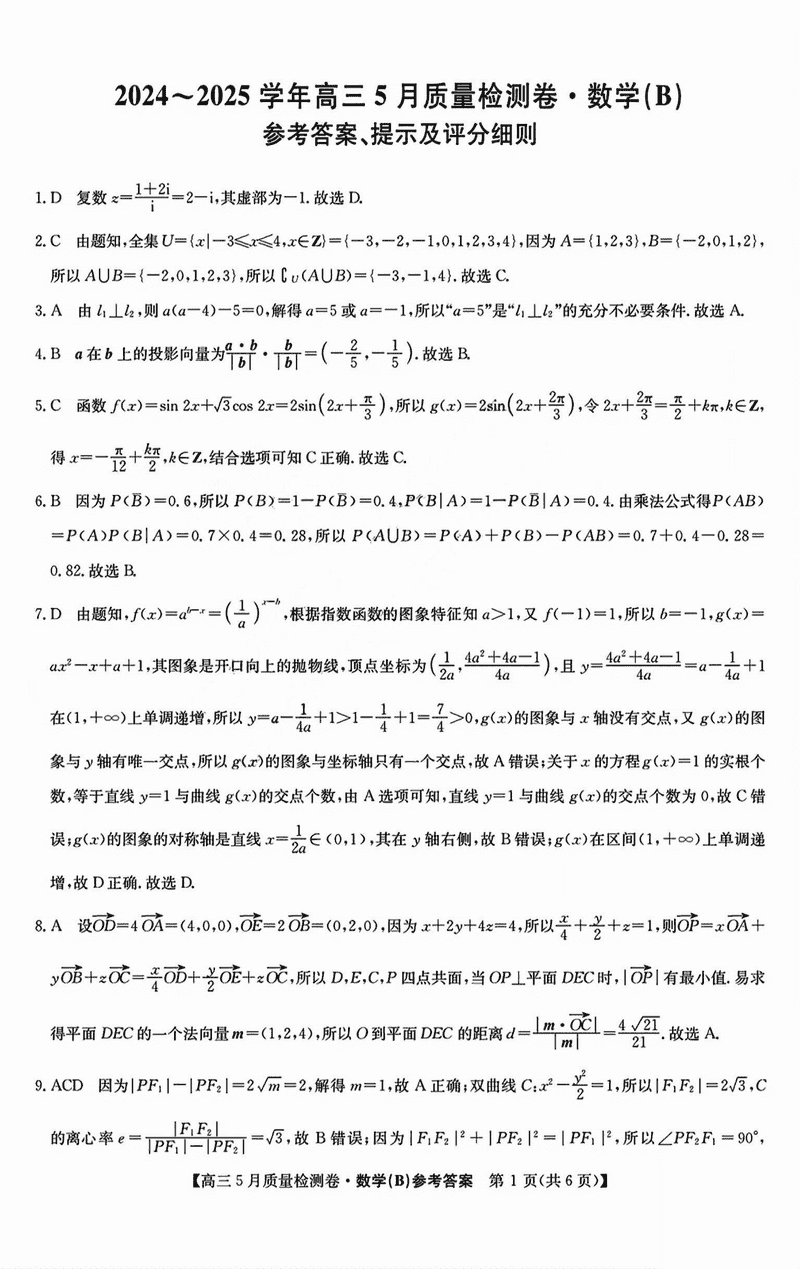 2024～2025 学年高三 5 月质量检测卷·数学(B)
参考答案、提示及评分细则
1. D 复数 z=\frac{1+2i}{i}=2-i,其虚部为-1. 故选 D.
2. C 由题知,全集U={x|-3≤x≤4,x∈Z}={-3,-2,-1,0,1,2,3,4},因为 A={1,2,3},B={-2,0,1,2},
所以 A∪B={-2,0,1,2,3},所以∁_U(A∪B)={-3,-1,4}. 故选 C.
3. A 由 l₁⊥l₂,则 a(a-4)-5=0,解得 a=5 或 a=-1,所以“a=5”是“l₁⊥l₂”的充分不必要条件. 故选 A.
4. B a 在 b 上的投影向量为\frac{a·b}{|b|}·\frac{b}{|b|}=(-\frac{2}{5},-\frac{1}{5}). 故选 B.
5. C 函数 f(x)=sin 2x+√3cos 2x=2sin(2x+\frac{π}{3}),所以 g(x)=2sin(2x+\frac{2π}{3}),令 2x+\frac{2π}{3}=\frac{π}{2}+kπ,k∈Z,
得 x=-\frac{π}{12}+\frac{kπ}{2},k∈Z,结合选项可知 C 正确. 故选 C.
6. B 因为 P(\overline{B})=0.6,所以 P(B)=1-P(\overline{B})=0.4,P(B|A)=1-P(\overline{B}|A)=0.4. 由乘法公式得P(AB)
=P(A)P(B|A)=0.7×0.4=0.28,所以 P(A∪B)=P(A)+P(B)-P(AB)=0.7+0.4-0.28=
0.82. 故选 B.
7. D 由题知,f(x)=a^{b-x}=(\frac{1}{a})^{x-b},根据指数函数的图象特征知 a>1,又 f(-1)=1,所以 b=-1,g(x)=
ax²-x+a+1,其图象是开口向上的抛物线,顶点坐标为(\frac{1}{2a},\frac{4a²+4a-1}{4a}),且 y=\frac{4a²+4a-1}{4a}=a-\frac{1}{4a}+1
在(1,+∞)上单调递增,所以 y=a-\frac{1}{4a}+1>1-\frac{1}{4}+1=\frac{7}{4}>0,g(x)的图象与 x 轴没有交点,又 g(x)的图
象与 y 轴有唯一交点,所以 g(x)的图象与坐标轴只有一个交点,故 A 错误;关于 x 的方程 g(x)=1 的实根个
数,等于直线 y=1 与曲线 g(x)的交点个数,由 A 选项可知,直线 y=1 与曲线 g(x)的交点个数为 0,故 C 错
误;g(x)的图象的对称轴是直线 x=\frac{1}{2a}∈(0,1),其在 y 轴右侧,故 B 错误;g(x)在区间(1,+∞)上单调递
增,故 D 正确. 故选 D.
8. A 设\overrightarrow{OD}=4\overrightarrow{OA}=(4,0,0),\overrightarrow{OE}=2\overrightarrow{OB}=(0,2,0),因为 x+2y+4z=4,所以\frac{x}{4}+\frac{y}{2}+z=1,则\overrightarrow{OP}=x\overrightarrow{OA}+
y\overrightarrow{OB}+z\overrightarrow{OC}=\frac{x}{4}\overrightarrow{OD}+\frac{y}{2}\overrightarrow{OE}+z\overrightarrow{OC},所以 D,E,C,P 四点共面,当 OP⊥平面 DEC 时,|\overrightarrow{OP}|有最小值. 易求
得平面 DEC 的一个法向量 m=(1,2,4),所以 O 到平面 DEC 的距离 d=\frac{|m·\overrightarrow{OC}|}{|m|}=\frac{4√21}{21}. 故选 A.
9. ACD 因为|PF₁|-|PF₂|=2√m=2,解得 m=1,故 A 正确;双曲线 C:x²-\frac{y²}{2}=1,所以|F₁F₂|=2√3,C
的离心率 e=\frac{|F₁F₂|}{|PF₁|-|PF₂|}=√3,故 B 错误;因为|F₁F₂|²+|PF₂|²=|PF₁|²,所以∠PF₂F₁=90°,
【高三 5 月质量检测卷·数学(B)参考答案 第 1 页(共 6 页)】